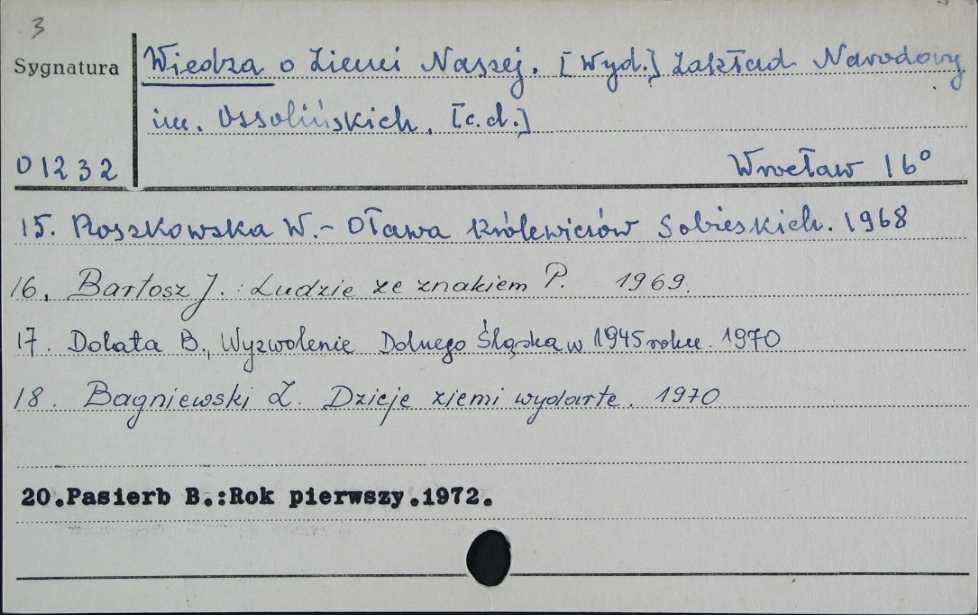 3
Sygnatura
Wiedza o Ziemi Naszej. [Wyd.] Zakład Narodowy
im. Ossolińskich. [c.d.]
01232
Wrocław 16°
15. Roszkowska W.- Oława królewiczów Sobieskich. 1968
16. Bartosz J.: Ludzie ze znakiem P. 1969.
17. Dolata B., Wyzwolenie Dolnego Śląska w 1945 roku. 1970
18. Bagniewski Z. Dzieje ziemi wydarte. 1970
20.Pasierb B.:Rok pierwszy.1972.